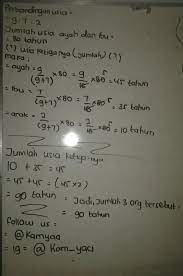 Perbandingan usia =
= 9 : 7 : 2
Jumlah usia ayah dan ibu =
= 80 tahun
(?) usia ketiganya (jumlah) (?)
maka :
= ayah = 9/(9+7) × 80 = 9/16 × 80 5 = 45 tahun
= ibu = 7/(9+7) × 80 = 7/16 × 80 5 = 35 tahun
= anak = 2/(9+7) × 80 = 2/16 × 80 5 = 10 tahun
Jumlah usia ketiganya
= 10 + 35 + 45
= 45 + 45 = (45 × 2)
= 90 tahun = Jadi, jumlah 3 org tersebut =
= 90 tahun
follow us =
= @Kamyaa
= ig =